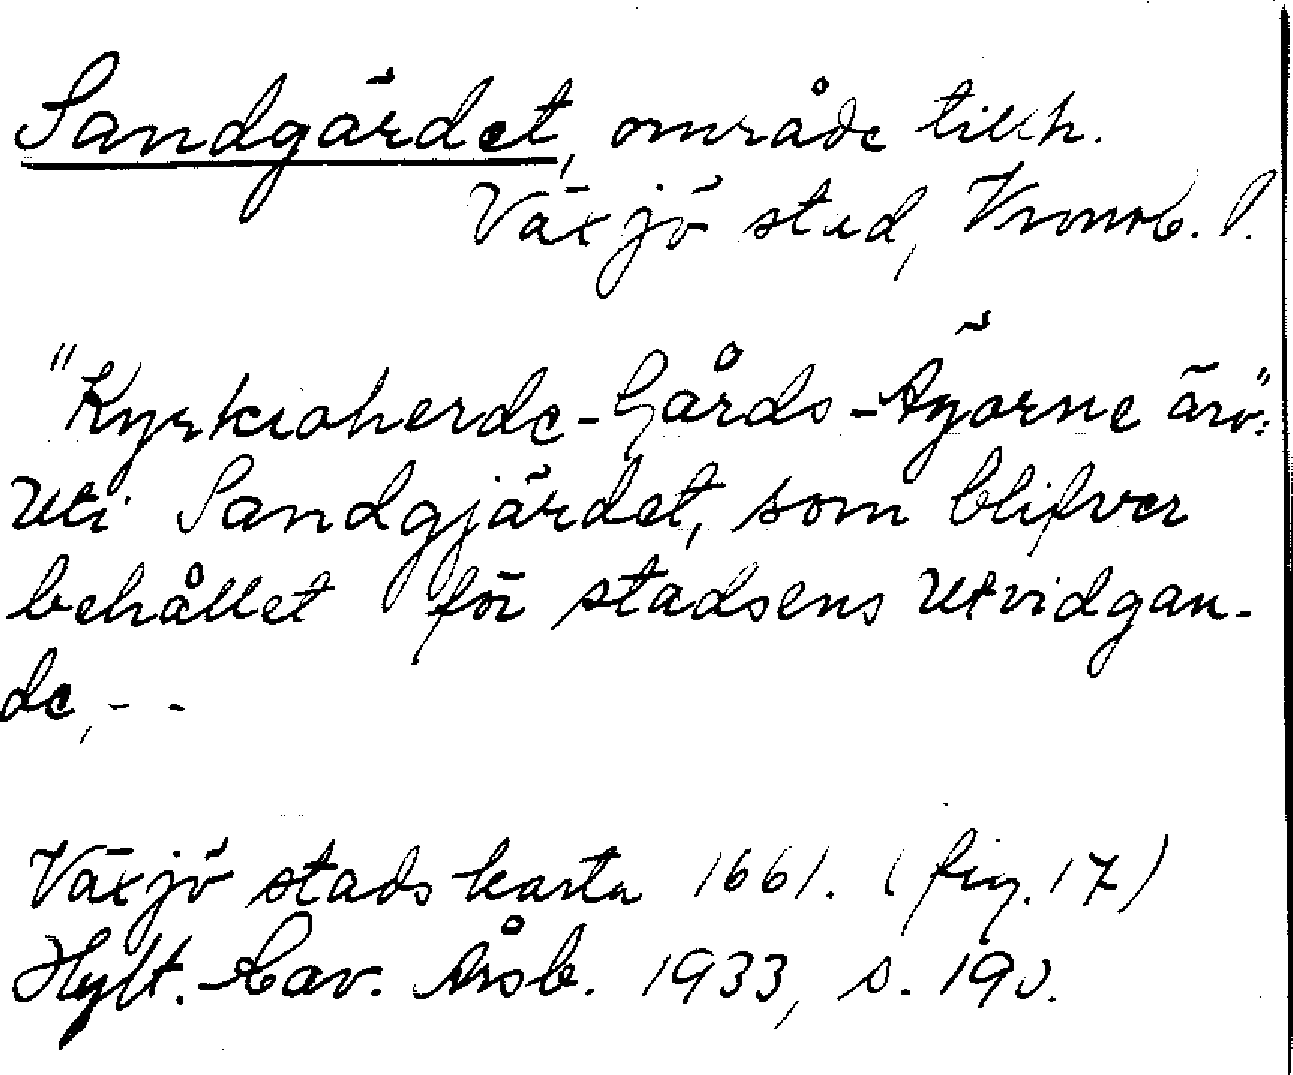 Sandgärdet, område tillh.
Växjö stad, Kronob. l.
"Kyrkioherde-Gårds-Ägorne äro":
Uti Sandgjärdet, som blifver
behållet för stadsens Utvidgan-
de, - -
Växjö stads karta 1661. (fig. 17)
Hylt.-Cav. Årsb. 1933, s. 190.